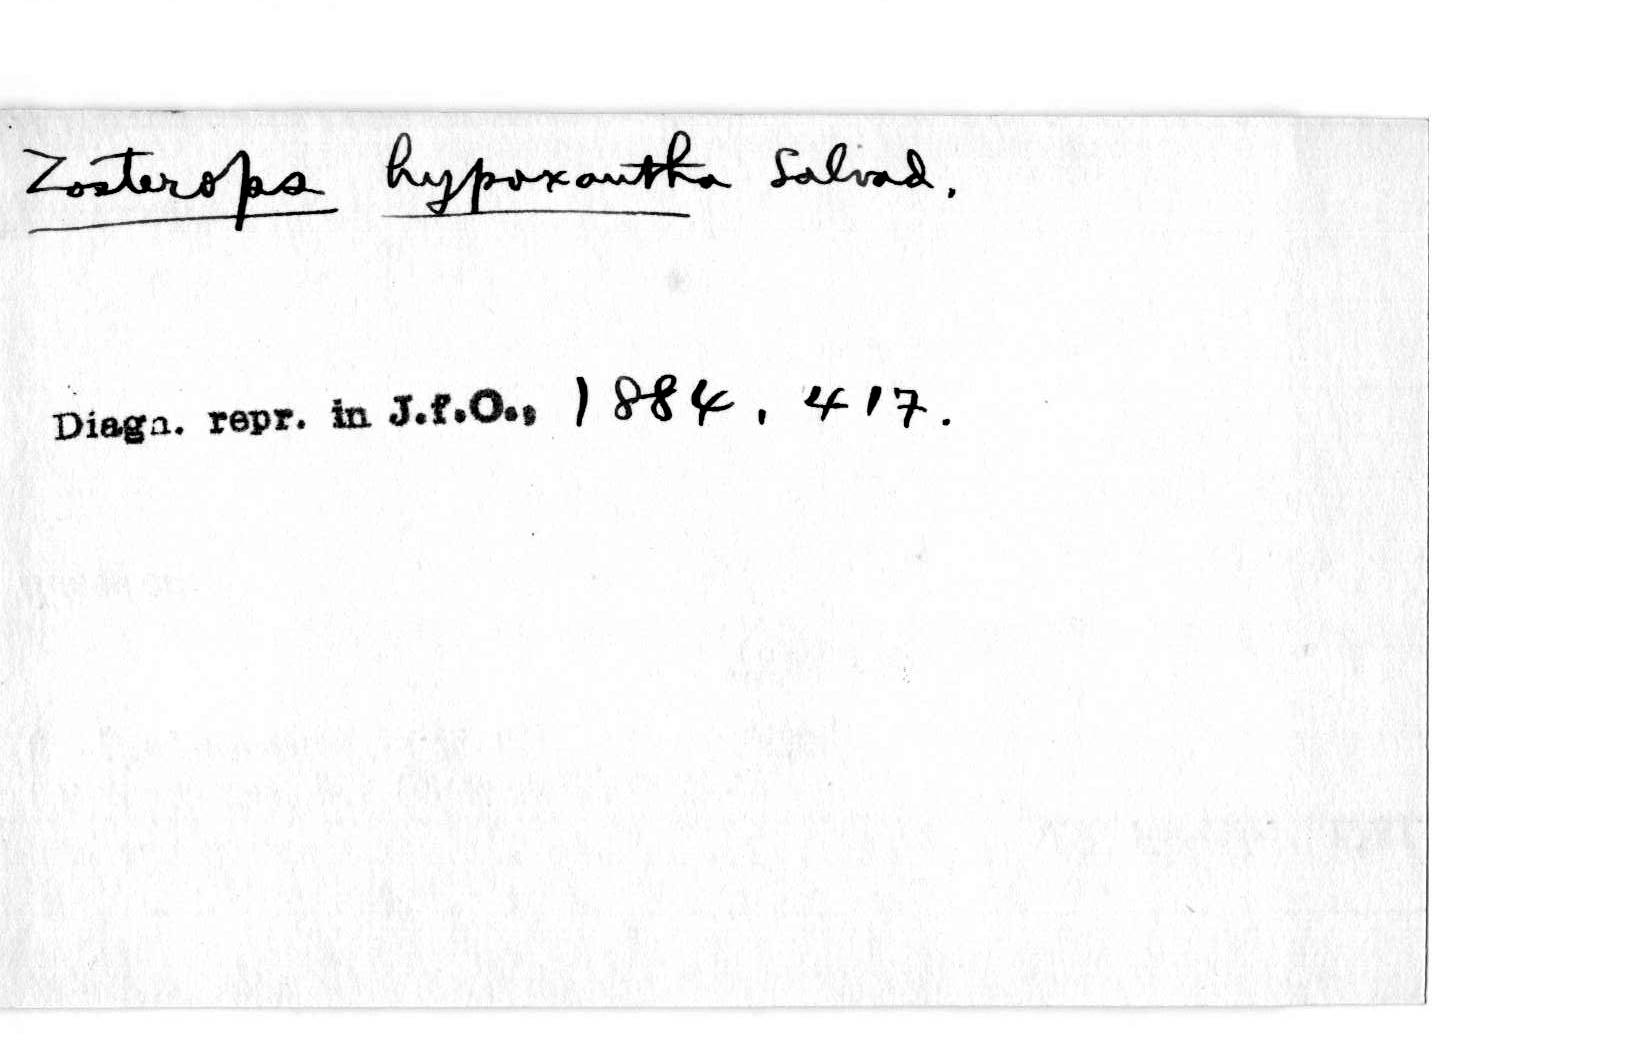 Zosterops hypoxantha Salvad.
Diagn. repr. in J.f.O., 1884, 417.